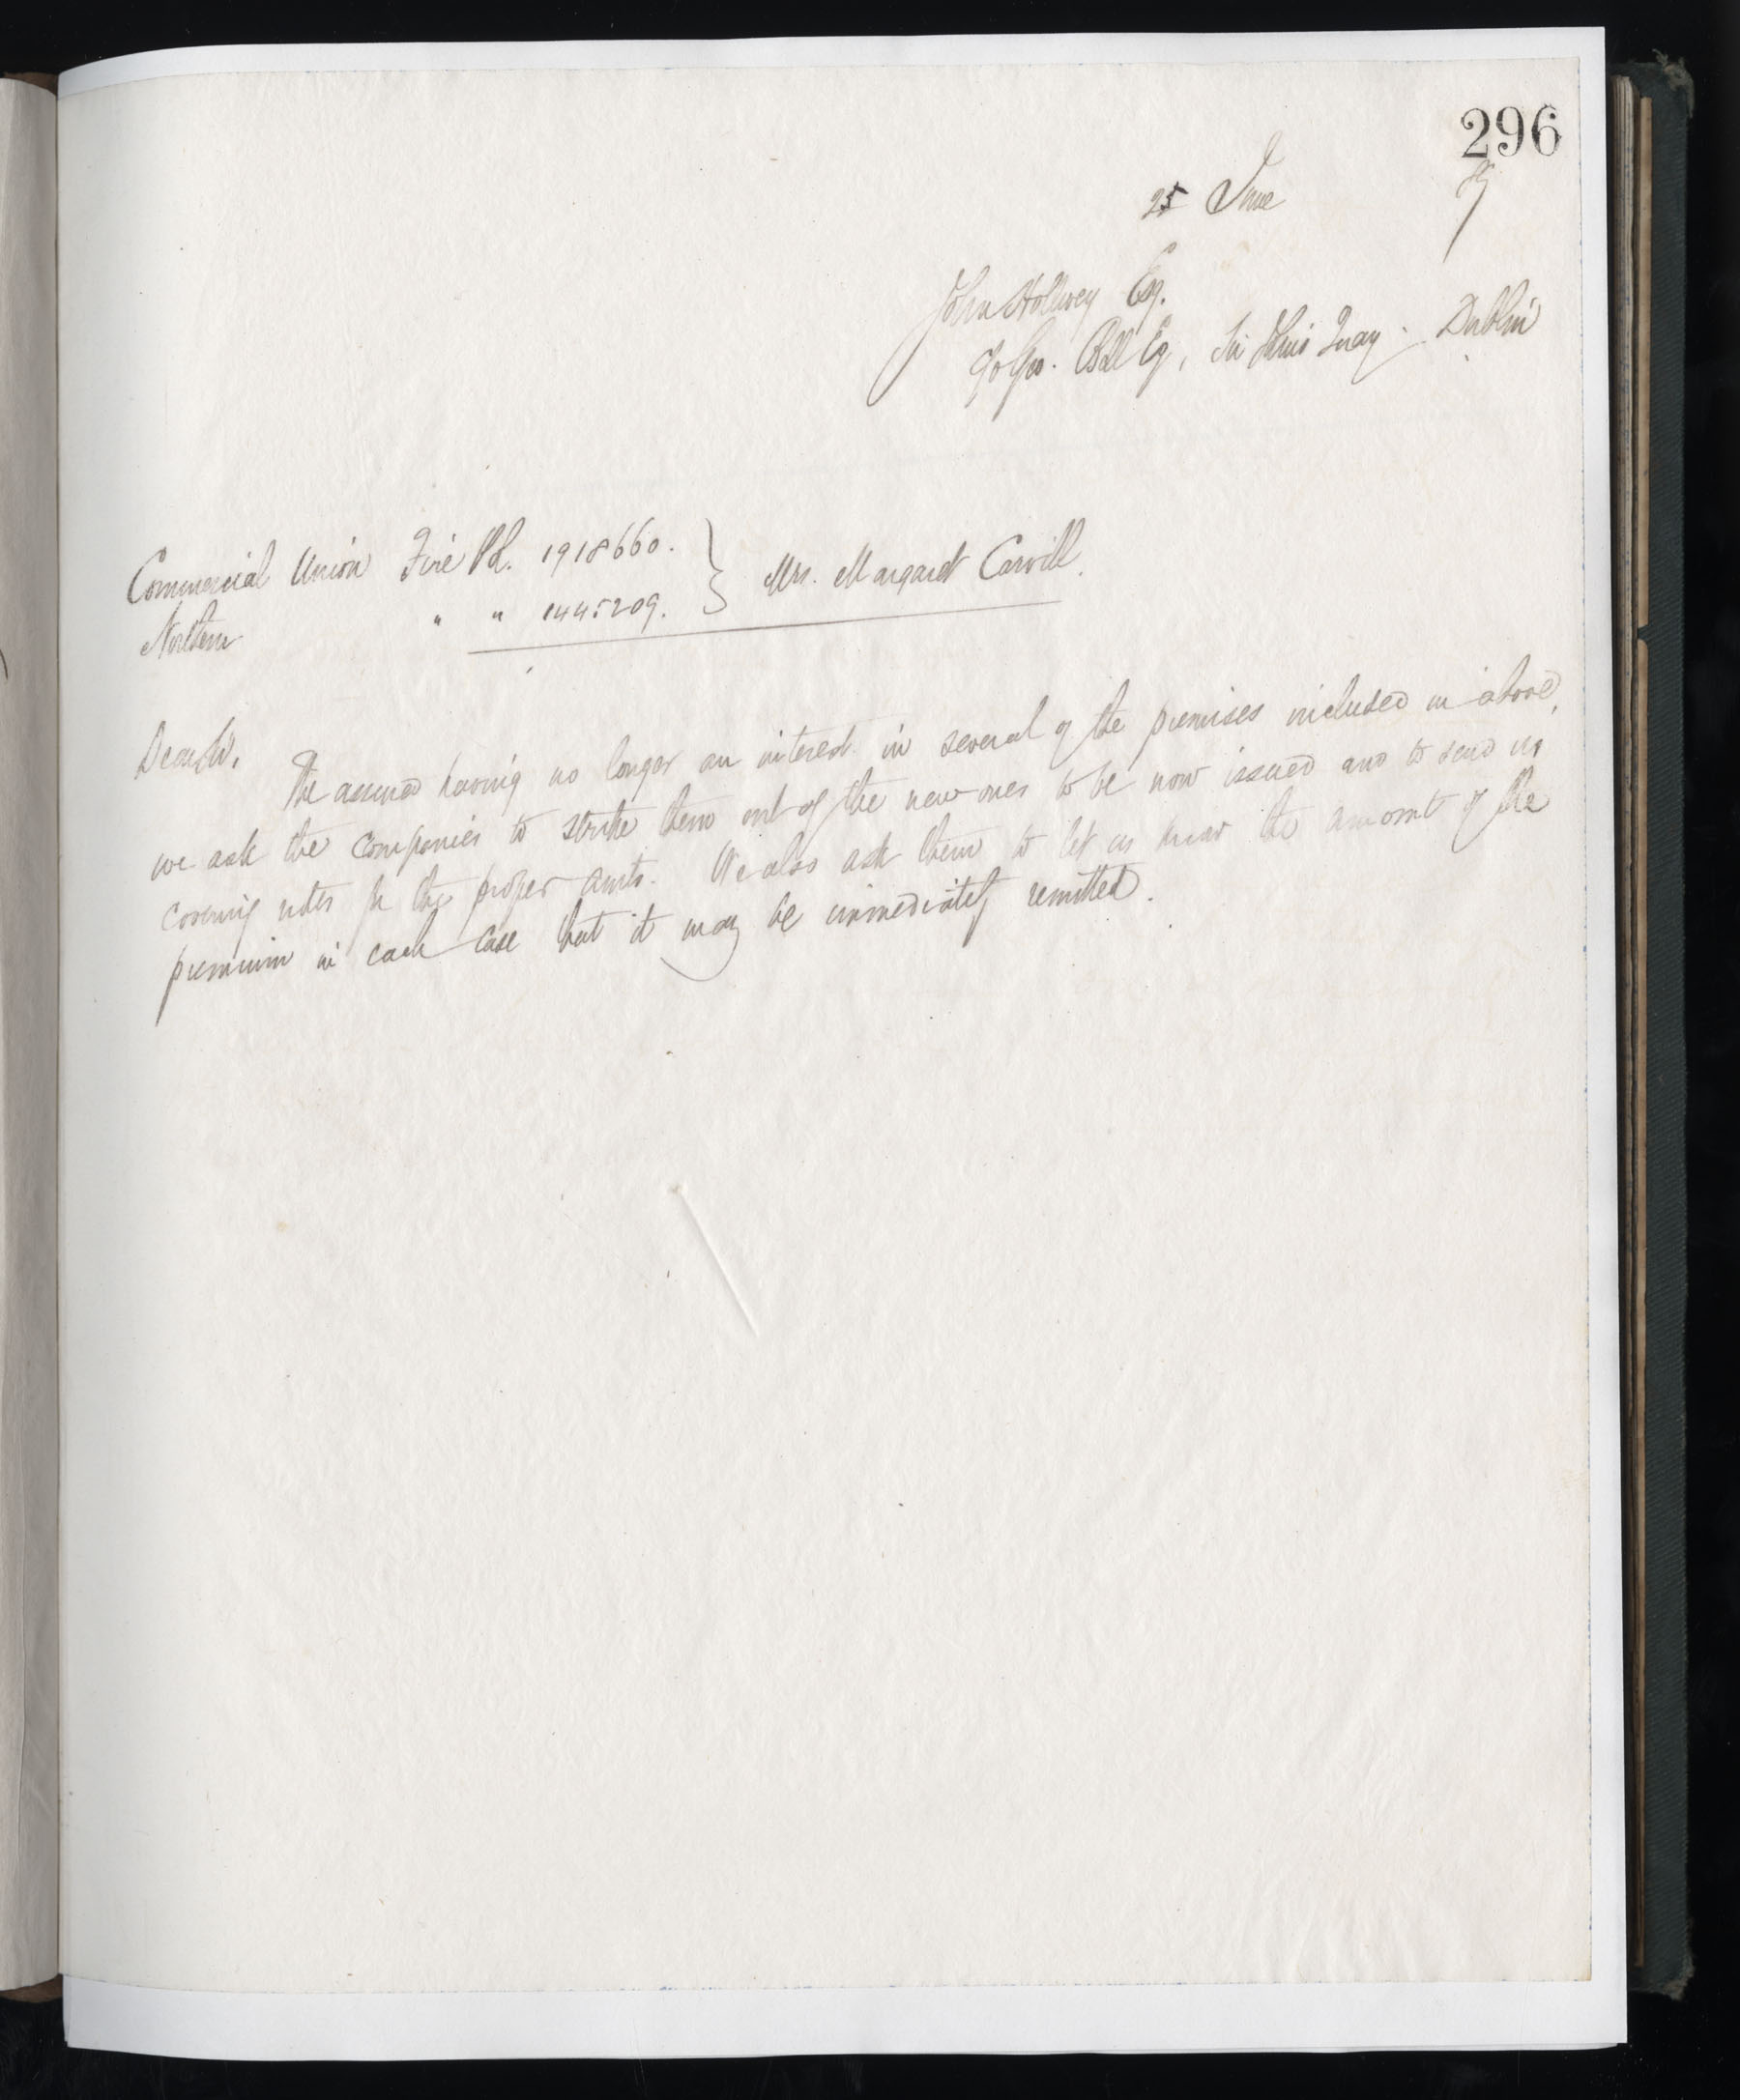 296
25 June
John Hollwey Esq.
c/o Geo. Bell Esq, Sir Johns Quay - Dublin
Commercial Union Fire Pol. 1918660. } Mrs. Margaret Carvill.
Northern " " 1445209.
Dear Sir,
The assured having no longer an interest in several of the premises included in above,
we ask the Companies to strike them out of the new ones to be now issued and to send us
covering notes for the proper amts. We also ask them to let us know the amount of the
premium in each case that it may be immediately remitted.